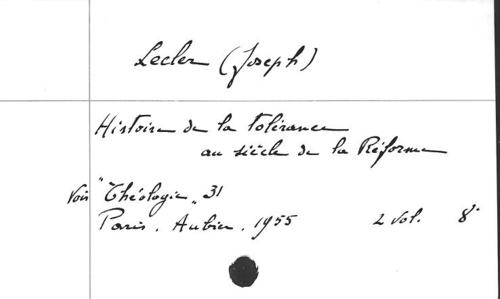 Lecler (Joseph)
Histoire de la tolérance
au siècle de la Réforme
Voir "Théologie" 31
Paris. Aubier. 1955 2 vol. 8°